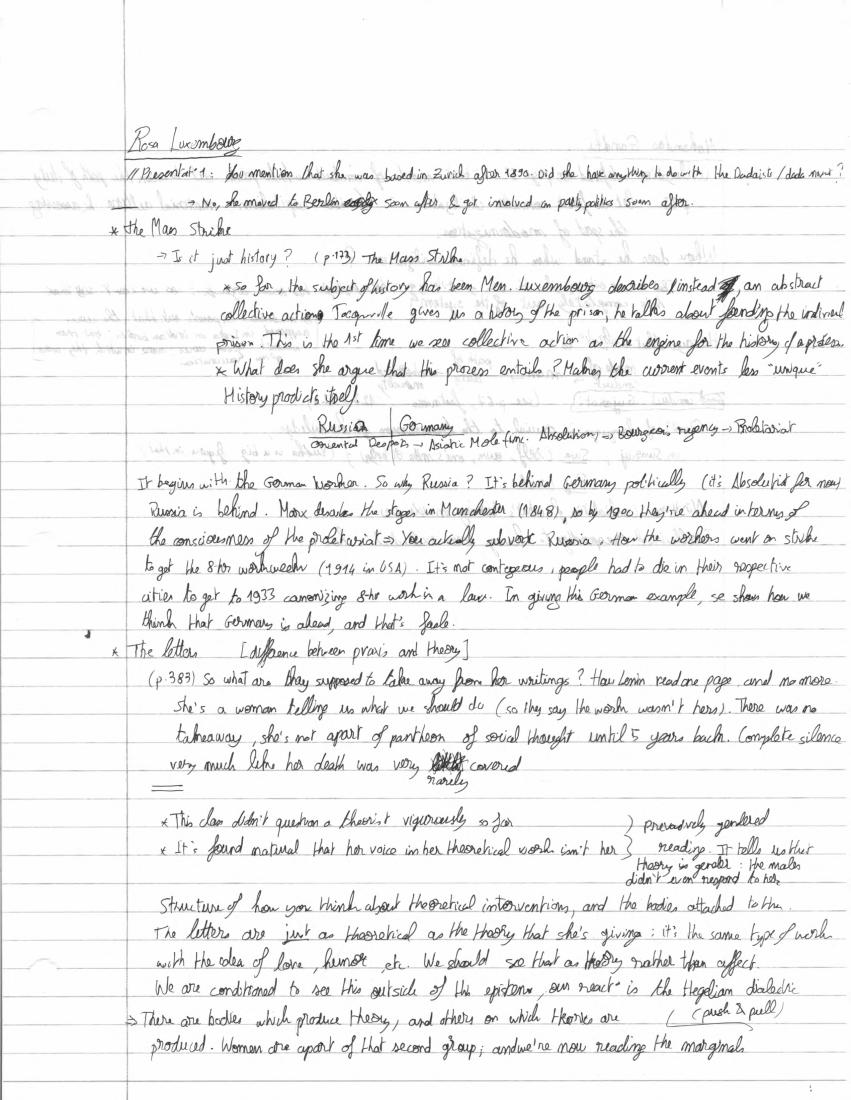 Rosa Luxembourg
// Presentat° 1: You mention that she was based in Zurich after 1890. Did she have anything to do with the Dadaists / dada mvmt?
→ No, she moved to Berlin soon after & got involved on party politics soon after.
* the Mass Strike
→ Is it just history? (p.173) The Mass Strike
* So far, the subject of history has been Men. Luxembourg describes instead, an abstract
collective action. Tocqueville gives us a history of the prison, he talks about founding the individual
prison. This is the 1st time we see collective action as the engine for the history of a process.
* What does she argue that this process entails? Makes the current events less "unique"
History predicts itself.
Russia | Germany
oriental Despots → Asiatic Mole func. Absolution, → Bourgeois regency → Proletariat
It begins with the German Worker. So why Russia? It's behind Germany politically (it's Absolutist for now)
Russia is behind. Marx describes the stages in Manchester (1848), so by 1900 they're ahead in terms of
the consciousness of the proletariat => You actually subvert Russia. How the workers went on strike
to get the 8 hr workweek (1914 in USA). It's not contegeous, people had to die in their respective
cities to get to 1933 cannonizing 8hr work in a law. In giving this German example, se shows how we
think that Germany is ahead, and that's fasle.
* The letters [difference between praxis and theory]
(p.383) So what are they supposed to take away from her writings? How Lenin read one page and no more.
She's a woman telling us what we should do (so they say the work wasn't hers). There was no
takeaway, she's not apart of pantheon of social thought until 5 years back. Complete silence
very much like her death was very rarely covered
* This class didn't question a theorist vigorously so far } pervasively gendered
* It's found natural that her voice in her theoretical work isn't her } reading. It tells us that
theory is gender: the males
didn't even respond to her
Structure of how you think about theoretical interventions, and the bodies attached to the.
The letters are just as theoretical as the theory that she's giving: it's the same type of work
with the idea of love, humor, etc. We should see that as theory rather than affect.
We are conditioned to see this outside of this episteme, our react° is the Hegelian dialectic
(push & pull)
⇒ There are bodies which produce theory, and others on which theories are
produced. Women are apart of that second group; and we're now reading the marginals